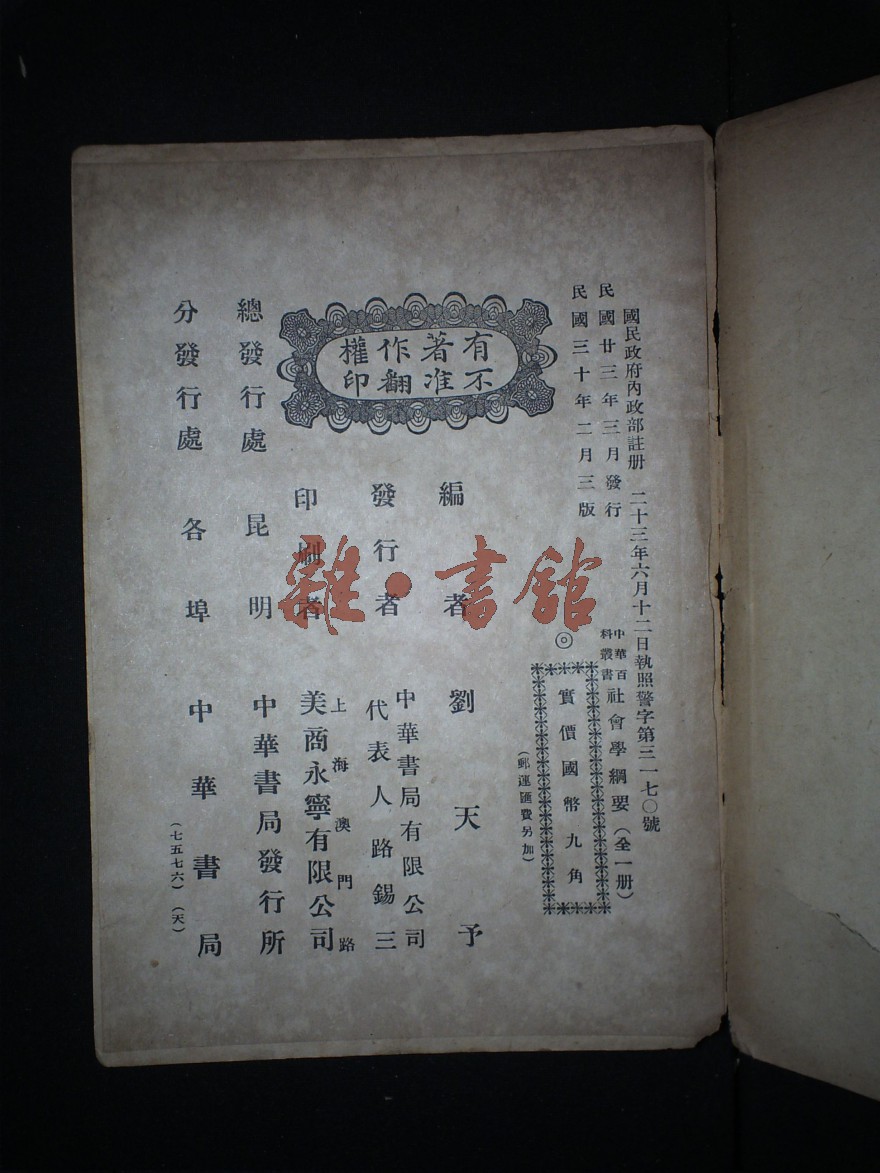 國民政府內政部註册 二十三年六月十二日執照警字第三一七〇號
民國廿三年三月發行
民國三十年二月三版
中華百科叢書 社會學綱要(全一册)
◎ 實價國幣九角
(郵運匯費另加)
有著作權
不准翻印
編者 劉天予
發行者 中華書局有限公司
代表人路錫三
印刷者 上海澳門路
美商永寧有限公司
總發行處 昆明 中華書局發行所
分發行處 各埠 中華書局
(七五七六)(天)
雜·書館